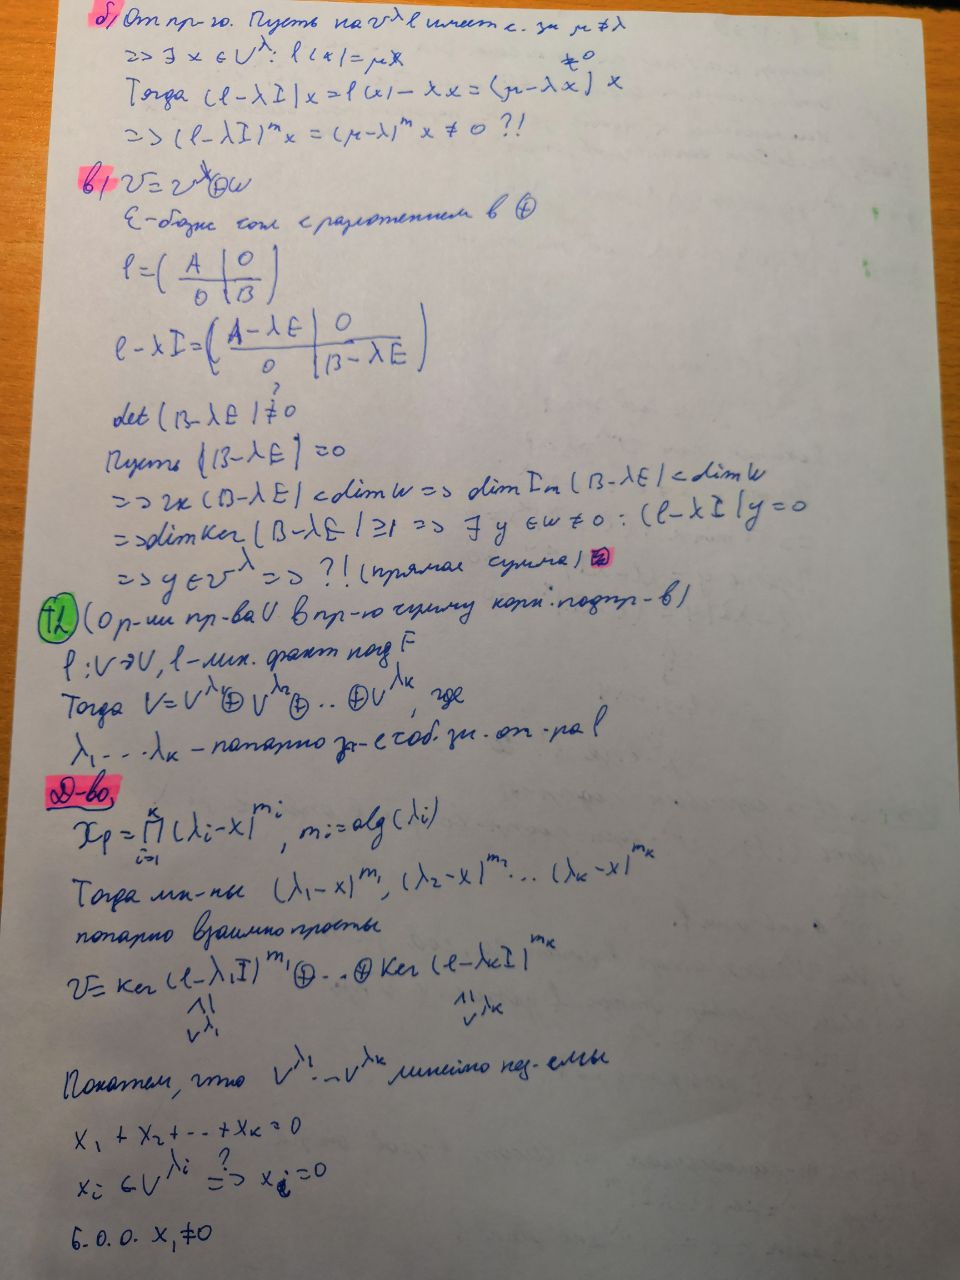 б) От пр-го. Пусть на V^λ l имеет с. зн μ ≠ λ
=> ∃ x ∈ V^λ : l(x) = μx
Тогда (l-λI)x = l(x) - λx = (μ-λx) x ≠0
=> (l-λI)^m x = (μ-λ)^m x ≠ 0 ?!
в) V = V^λ ⊕ W
E-базис согл с разложением в ⊕
l = ( A | 0
0 | B )
l - λI = ( A-λE | 0
0 | B-λE )
?
det (B-λE) ≠ 0
Пусть |B-λE| = 0
=> rk (B-λE) < dim W => dim Im (B-λE) < dim W
=> dim Ker (B-λE) ≥ 1 => ∃ y ∈ W ≠ 0 : (l-λI)y = 0
=> y ∈ V^λ => ?! (прямая сумма)
т2 (О р-ии пр-ва V в пр-ю сумму корн. подпр-в)
l : V → V, l - лин. факт над F
Тогда V = V^λ1 ⊕ V^λ2 ⊕ .. ⊕ V^λk, где
λ1 ... λk - попарно соб. зн. оп-ра l
Д-во.
χ_l = ∏_{i=1}^{k} (λi - x)^{mi}, mi = alg(λi)
Тогда мн-ны (λ1-x)^{m1}, (λ2-x)^{m2} ... (λk-x)^{mk}
попарно взаимнопросты
V = Ker (l-λ1I)^{m1} ⊕ .. ⊕ Ker (l-λkI)^{mk}
V^λ1 V^λk
Покажем, что V^λ1 ... V^λk линейно нез-симы
x1 + x2 + .. + xk = 0
xi ∈ V^λi =>? xi = 0
Б.О.О. x1 ≠ 0